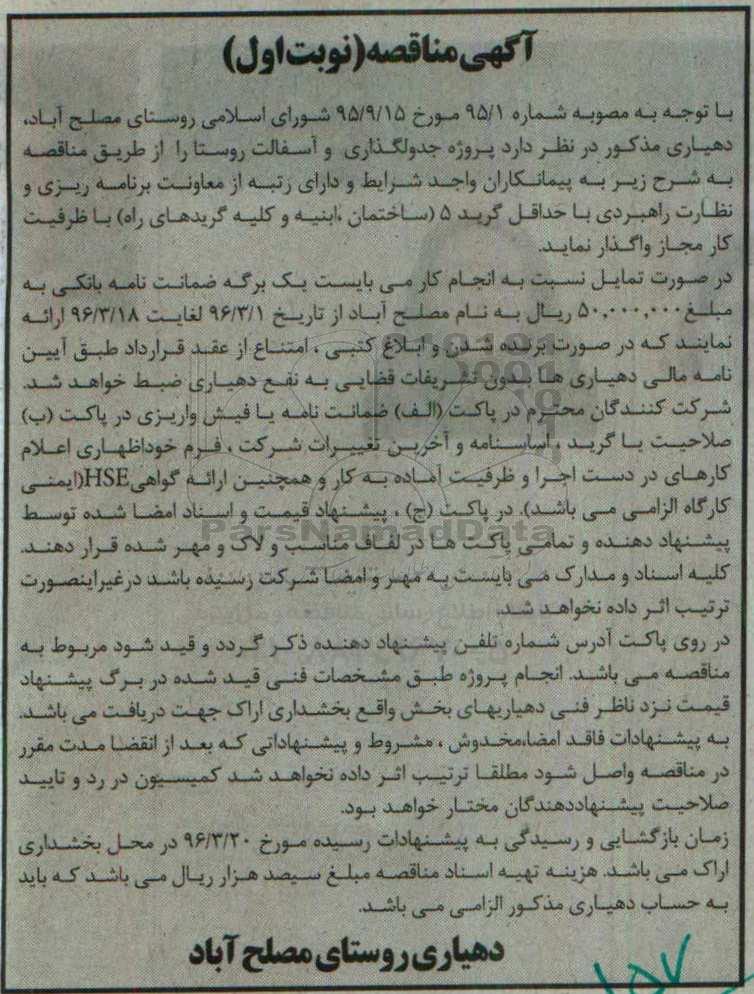 آگهی مناقصه (نوبت اول)
با توجه به مصوبه شماره ۹۵/۱ مورخ ۹۵/۹/۱۵ شورای اسلامی روستای مصلح آباد،
دهیاری مذکور در نظر دارد پروژه جدولگذاری و آسفالت روستا را از طریق مناقصه
به شرح زیر به پیمانکاران واجد شرایط و دارای رتبه از معاونت برنامه ریزی و
نظارت راهبردی با حداقل گرید ۵ (ساختمان ،ابنیه و کلیه گریدهای راه) با ظرفیت
کار مجاز واگذار نماید.
در صورت تمایل نسبت به انجام کار می بایست یک برگه ضمانت نامه بانکی به
مبلغ ۵۰,۰۰۰,۰۰۰ ریال به نام مصلح آباد از تاریخ ۹۶/۳/۱ لغایت ۹۶/۳/۱۸ ارائه
نمایند که در صورت برنده شدن و ابلاغ کتبی ، امتناع از عقد قرارداد طبق آیین
نامه مالی دهیاری ها بدون تشریفات قضایی به نفع دهیاری ضبط خواهد شد.
شرکت کنندگان محترم در پاکت (الف) ضمانت نامه یا فیش واریزی در پاکت (ب)
صلاحیت یا گرید ، اساسنامه و آخرین تغییرات شرکت ، فرم خوداظهاری اعلام
کارهای در دست اجرا و ظرفیت آماده به کار و همچنین ارائه گواهی HSE(ایمنی
کارگاه الزامی می باشد). در پاکت (ج) ، پیشنهاد قیمت و اسناد امضا شده توسط
پیشنهاد دهنده و تمامی پاکت ها در لفاف مناسب و لاک و مهر شده قرار دهند.
کلیه اسناد و مدارک می بایست به مهر و امضا شرکت رسیده باشد درغیراینصورت
ترتیب اثر داده نخواهد شد.
در روی پاکت آدرس شماره تلفن پیشنهاد دهنده ذکر گردد و قید شود مربوط به
مناقصه می باشد. انجام پروژه طبق مشخصات فنی قید شده در برگ پیشنهاد
قیمت نزد ناظر فنی دهیاریهای بخش واقع بخشداری اراک جهت دریافت می باشد.
به پیشنهادات فاقد امضا،مخدوش ، مشروط و پیشنهاداتی که بعد از انقضا مدت مقرر
در مناقصه واصل شود مطلقا ترتیب اثر داده نخواهد شد کمیسیون در رد و تایید
صلاحیت پیشنهاددهندگان مختار خواهد بود.
زمان بازگشایی و رسیدگی به پیشنهادات رسیده مورخ ۹۶/۳/۲۰ در محل بخشداری
اراک می باشد. هزینه تهیه اسناد مناقصه مبلغ سیصد هزار ریال می باشد که باید
به حساب دهیاری مذکور الزامی می باشد.
دهیاری روستای مصلح آباد
ParsNamadData